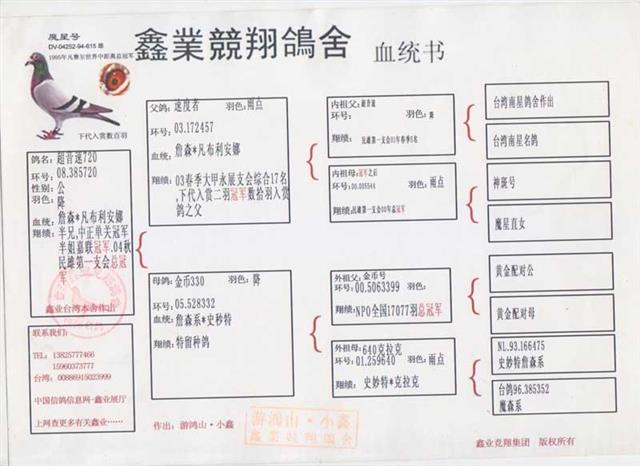 魔星号
DV-04252-94-615 雄
1995年凡赛尔世界中距离总冠军
鑫業競翔鴿舍
血统书
下代入赏数百羽
鸽名: 超音速720
环号: 08.385720
性别: 公
羽色: 降
血统: 詹森*凡布利安娜
翔绩: 半兄,中正单关冠军
半姐嘉联冠军.04秋
民雄第一支会总冠
军
鑫业台湾本舍作出
联系我们:
TEL: 13825777466
15960373777
台湾: 00886915023999
中国信鸽信息网-鑫业展厅
上网查更多有关鑫业……
父鸽: 速度者 羽色: 雨点
环号: 03.172457
血统: 詹森*凡布利安娜
翔绩: 03春季大甲永展支会综合17名
,下代入赏二羽冠军数拾羽入赏
鸽之父
母鸽: 金币330 羽色: 降
环号: 05.528332
血统: 詹森系*史秒特
翔绩: 特留种鸽
内祖父: 超音速
环号: 羽色: 降
翔绩: 民雄第一支会01年春季5名
内祖母: 冠军之后
环号: 00.005544 羽色: 雨点
翔绩: 民雄第一支会00年总冠军
外祖父: 金币号
环号: 00.5063399
翔绩: NPO全国17077羽总冠军
外祖母: 640克拉克
环号: 01.259640 羽色: 雨点
翔绩: 史妙特*克拉克
台湾南星鸽舍作出
台湾南星名鸽
神斑号
魔星直女
黄金配对公
黄金配对母
NL.93.166475
史妙特詹森系
台鸽96.385352
魔森系
作出: 游鸿山·小鑫
游鴻山·小鑫
鑫業競翔鴿舍
鑫业竞翔集团 版权所有